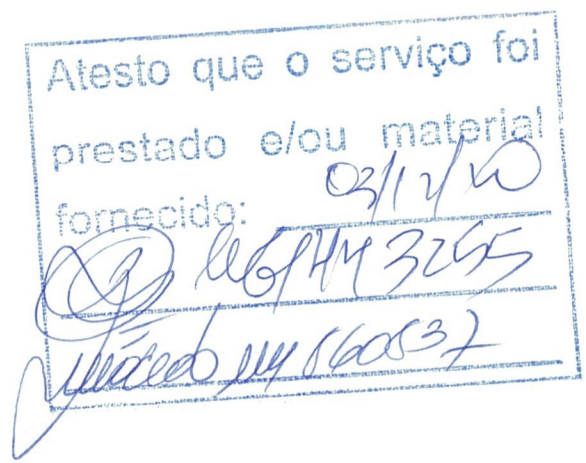 Atesto que o serviço foi
prestado e/ou material
fornecido: 03/12/20
3255
560537